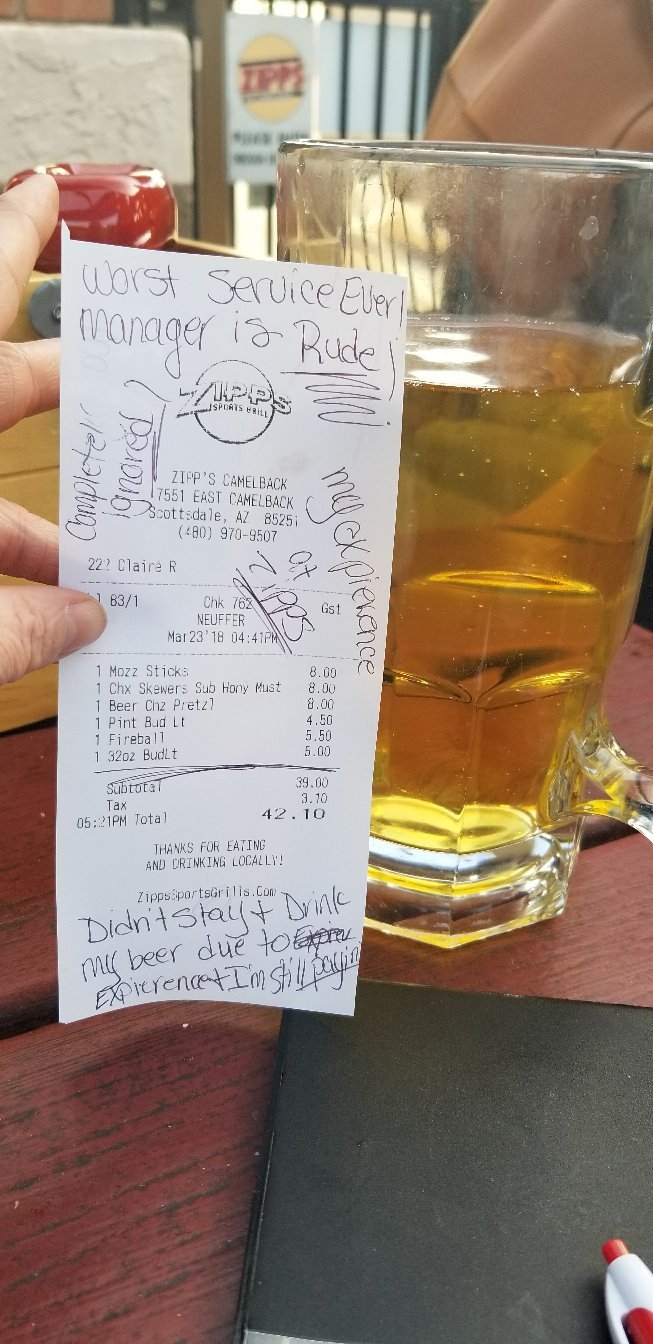 ZIPPS
PLEASE
Worst Service Ever!
manager is Rude!
Completely
ignored
ZIPPS
SPORTS GRILL
ZIPP'S CAMELBACK
7551 EAST CAMELBACK
Scottsdale, AZ 85251
(480) 970-9507
my expierence
at
Zipps
222 Claire R
83/1 Chk 762 Gst
NEUFFER
Mar23'18 04:41PM
1 Mozz Sticks 8.00
1 Chx Skewers Sub Hony Must 8.00
1 Beer Chz Pretzl 8.00
1 Pint Bud Lt 4.50
1 Fireball 5.50
1 32oz BudLt 5.00
Subtotal 39.00
Tax 3.10
05:21PM Total 42.10
THANKS FOR EATING
AND DRINKING LOCALLY!
ZippsSportsGrills.Com
Didn't stay + Drink
my beer due to
Expierence + I'm still payin